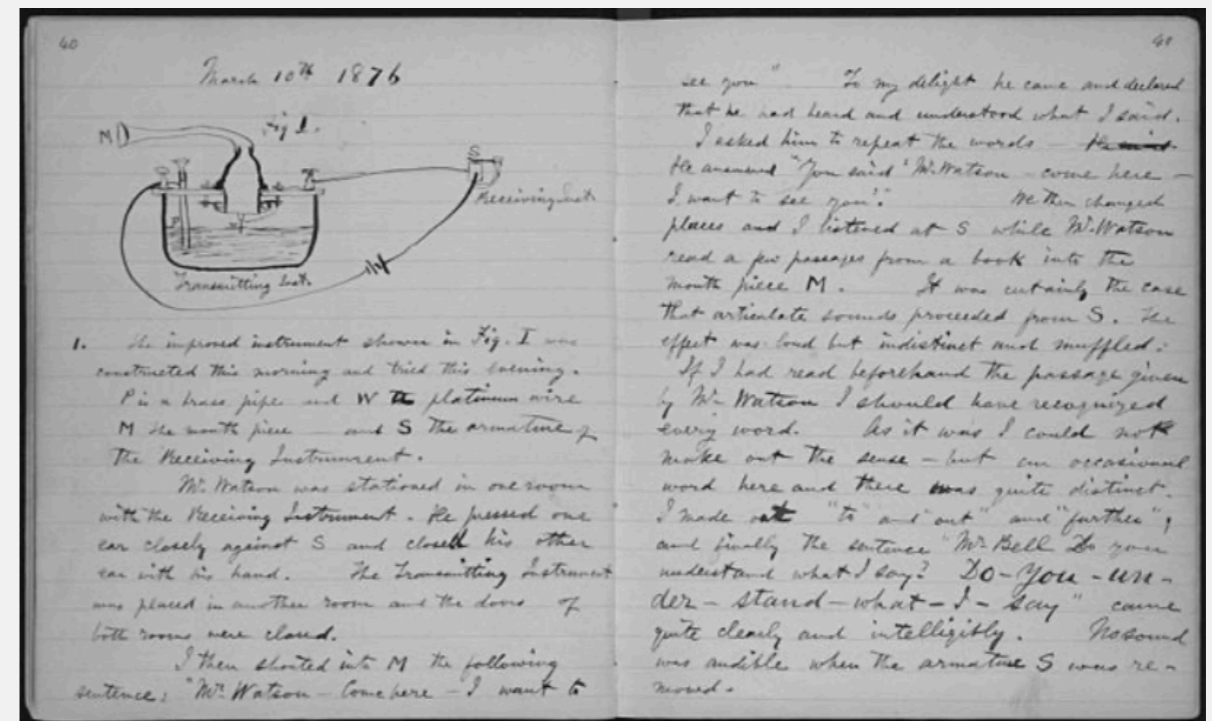 40
March 10th 1876
Fig I.
M
S
Receiving Inst.
P
W
Transmitting Inst.
1. The improved instrument shown in Fig. I was
constructed this morning and tried this evening.
P is a brass pipe and W the platinum wire
M the mouth piece and S the armature of
the Receiving Instrument.
Mr. Watson was stationed in one room
with the Receiving Instrument. He pressed one
ear closely against S and closed his other
ear with his hand. The Transmitting Instrument
was placed in another room and the doors of
both rooms were closed.
I then shouted into M the following
sentence: "Mr. Watson - Come here - I want to
41
see you". To my delight he came and declared
that he had heard and understood what I said.
I asked him to repeat the words - He said
He answered "You said 'Mr. Watson - come here -
I want to see you'." We then changed
places and I listened at S while Mr. Watson
read a few passages from a book into the
mouth piece M. It was certainly the case
that articulate sounds proceeded from S. The
effect was loud but indistinct and muffled.
If I had read beforehand the passage given
by Mr. Watson I should have recognized
every word. As it was I could not
make out the sense - but an occasional
word here and there was quite distinct.
I made out "to" and "out" and "further";
and finally the sentence "Mr. Bell Do you
understand what I say? Do-you-un-
der-stand-what-I-say" came
quite clearly and intelligibly. No sound
was audible when the armature S was re-
moved.